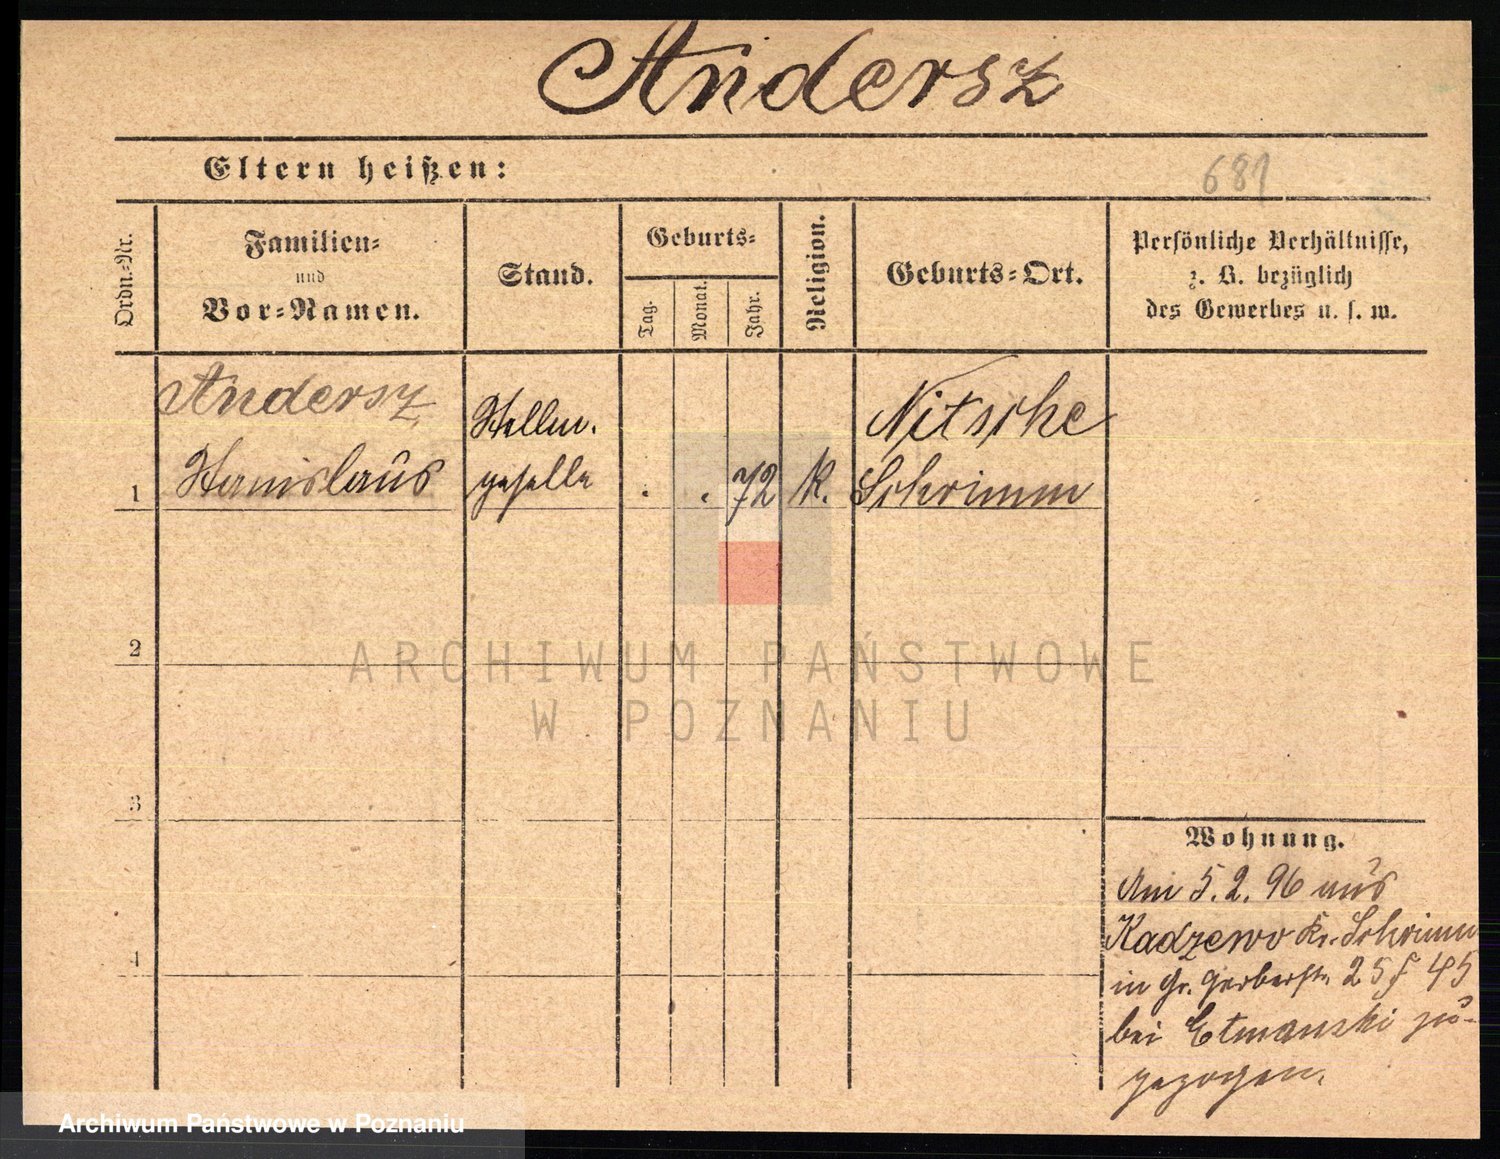 Andersz
Eltern heißen:
681
Ordn.-Nr.
Familien-
und
Vor-Namen.
Stand.
Geburts-
Tag.
Monat.
Jahr.
Religion.
Geburts-Ort.
Persönliche Verhältnisse,
z. B. bezüglich
des Gewerbes u. s. w.
Andersz
Stanislaus
Stellm.
geselle
1
. . 72
k.
Nitsche
Schrimm
2
ARCHIWUM PAŃSTWOWE
W POZNANIU
3
4
Wohnung.
Am 5.2.96 aus
Kadzewo Kr. Schrimm
in Gr. Gerberstr. 25 f 45
bei Etmanski zu-
gezogen.
Archiwum Państwowe w Poznaniu